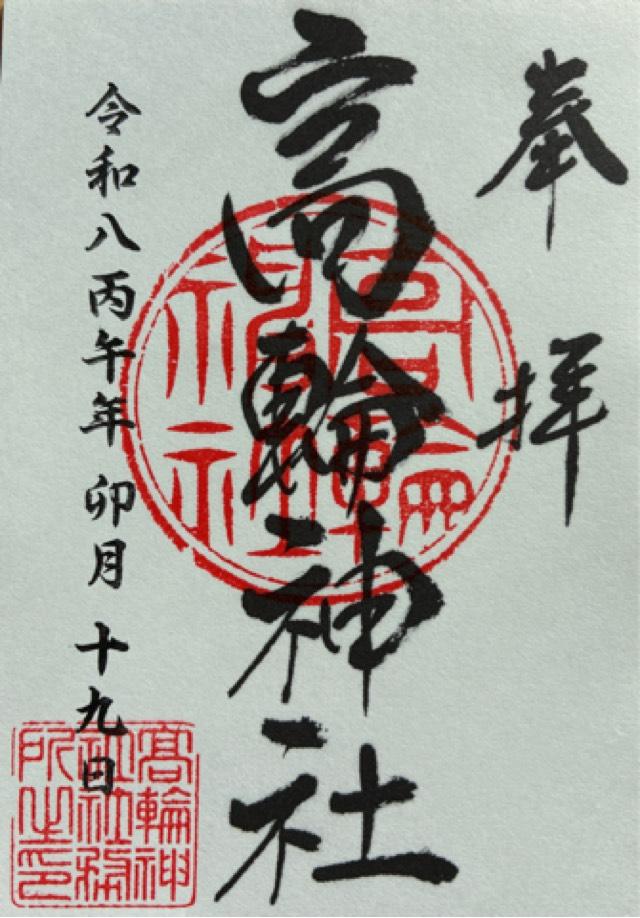 奉拝
高輪神社
令和八丙午年 卯月 十九日
高輪神社
高輪神社社務所之印